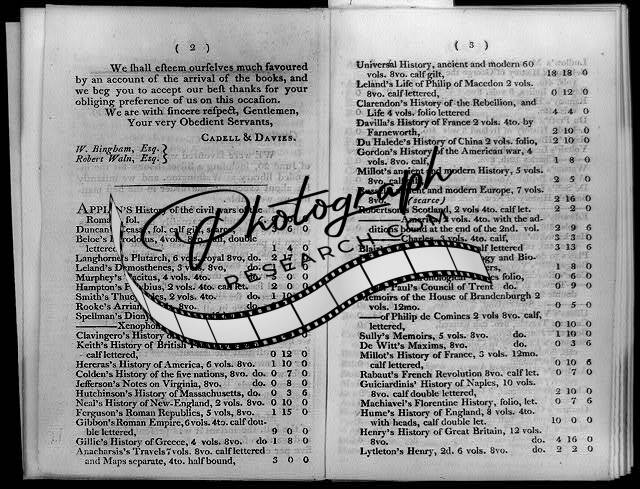 ( 2 )
We shall esteem ourselves much favoured
by an account of the arrival of the books, and
we beg you to accept our best thanks for your
obliging preference of us on this occasion.
We are with sincere respect, Gentlemen,
Your very Obedient Servants,
CADELL & DAVIES.
W. Bingham, Esq.
Robert Waln, Esq.
History of the civil wars of the
fol. calf gilt,
Duncan
double
lettered, 1 4 0
Langhorne's Plutarch, 6 vol. royal 8vo. do. 2
Leland's Demosthenes, 3 vols. 8vo.
Murphy's Tacitus, 4 vols. 4to.
Hampton's Polybius, 2 vols. 4to. calf let. 2 0
Smith's 2 vols. 4to. do. 1 10
Rooke's
Spelman's
Xenophon
Clavingero's History
Keith's History of British
calf lettered, 0 12 0
Hereras's History of America, 6 vols. 8vo. 1 10 0
Colden's History of the five nations, 8vo. do. 0 7 0
Jefferson's Notes on Virginia, 8vo. do. 0 8 0
Hutchinson's History of Massachusetts, do. 0 3 6
Neal's History of New-England, 2 vols. 8vo. 0 10 0
Ferguson's Roman Republics, 5 vols, 8vo. 1 15 0
Gibbon's Roman Empire, 6 vols. 4to. calf dou-
ble lettered, 9 0 0
Gillie's History of Greece, 4 vols. 8vo. do 1 8 0
Anacharsis's Travels 7 vols. 8vo. calf lettered
and Maps separate, 4to. half bound, 3 0 0
( 3 )
Universal History, ancient and modern 60
vols. 8vo. calf gilt, 18 18 0
Leland's Life of Philip of Macedon 2 vols.
8vo. calf lettered, 0 12 0
Clarendon's History of the Rebellion, and
Life 4 vols. folio lettered 4 4 0
Davilla's History of France 2 vols. 4to. by
Farneworth, 2 10 0
Du Halede's History of China 2 vols. folio, 2 10 0
Gordon's History of the American war, 4
vols. 8vo. calf, 1 8 0
Millot's ancient and modern History, 5 vols.
8vo. calf 2 5 0
ancient and modern Europe, 7 vols.
8vo. (scarce) 2 16 0
Robertson's Scotland, 2 vols 4to. calf let. 2 2 0
3 vols. 4to. with the ad-
bound at the end of the 2d. vol. 2 9 6
Charles 4 vols. 4to. calf, 3 3 0
Blair's calf lettered 3 13
and Bio-
1 8 0
folio, 0 6 0
Paul's Council of Trent do. 0 9 0
Memoirs of the House of Brandenburgh 2
vols. 12mo. 0 5 0
of Philip de Comines 2 vols 8vo. calf,
lettered, 0 10 0
Sully's Memoirs, 5 vols. 8vo. do. 1 10 0
De Witt's Maxims, 8vo. do. 0 3 6
Millot's History of France, 3 vols. 12mo.
calf lettered, 0 10 6
Rabaut's French Revolution 8vo. calf let. 0 7 0
Guiciardinis' History of Naples, 10 vols.
8vo. calf double lettered, 2 10 0
Machiavel's Florentine History, folio, let. 0 7 6
Hume's History of England, 8 vols. 4to.
with heads, calf double let. 10 0 0
Henry's History of Great Britain, 12 vols.
8vo. do. 4 16 0
Lytleton's Henry, 2d. 6 vols. 8vo. do. 2 2 0
Photograph
RESEARCH.COM